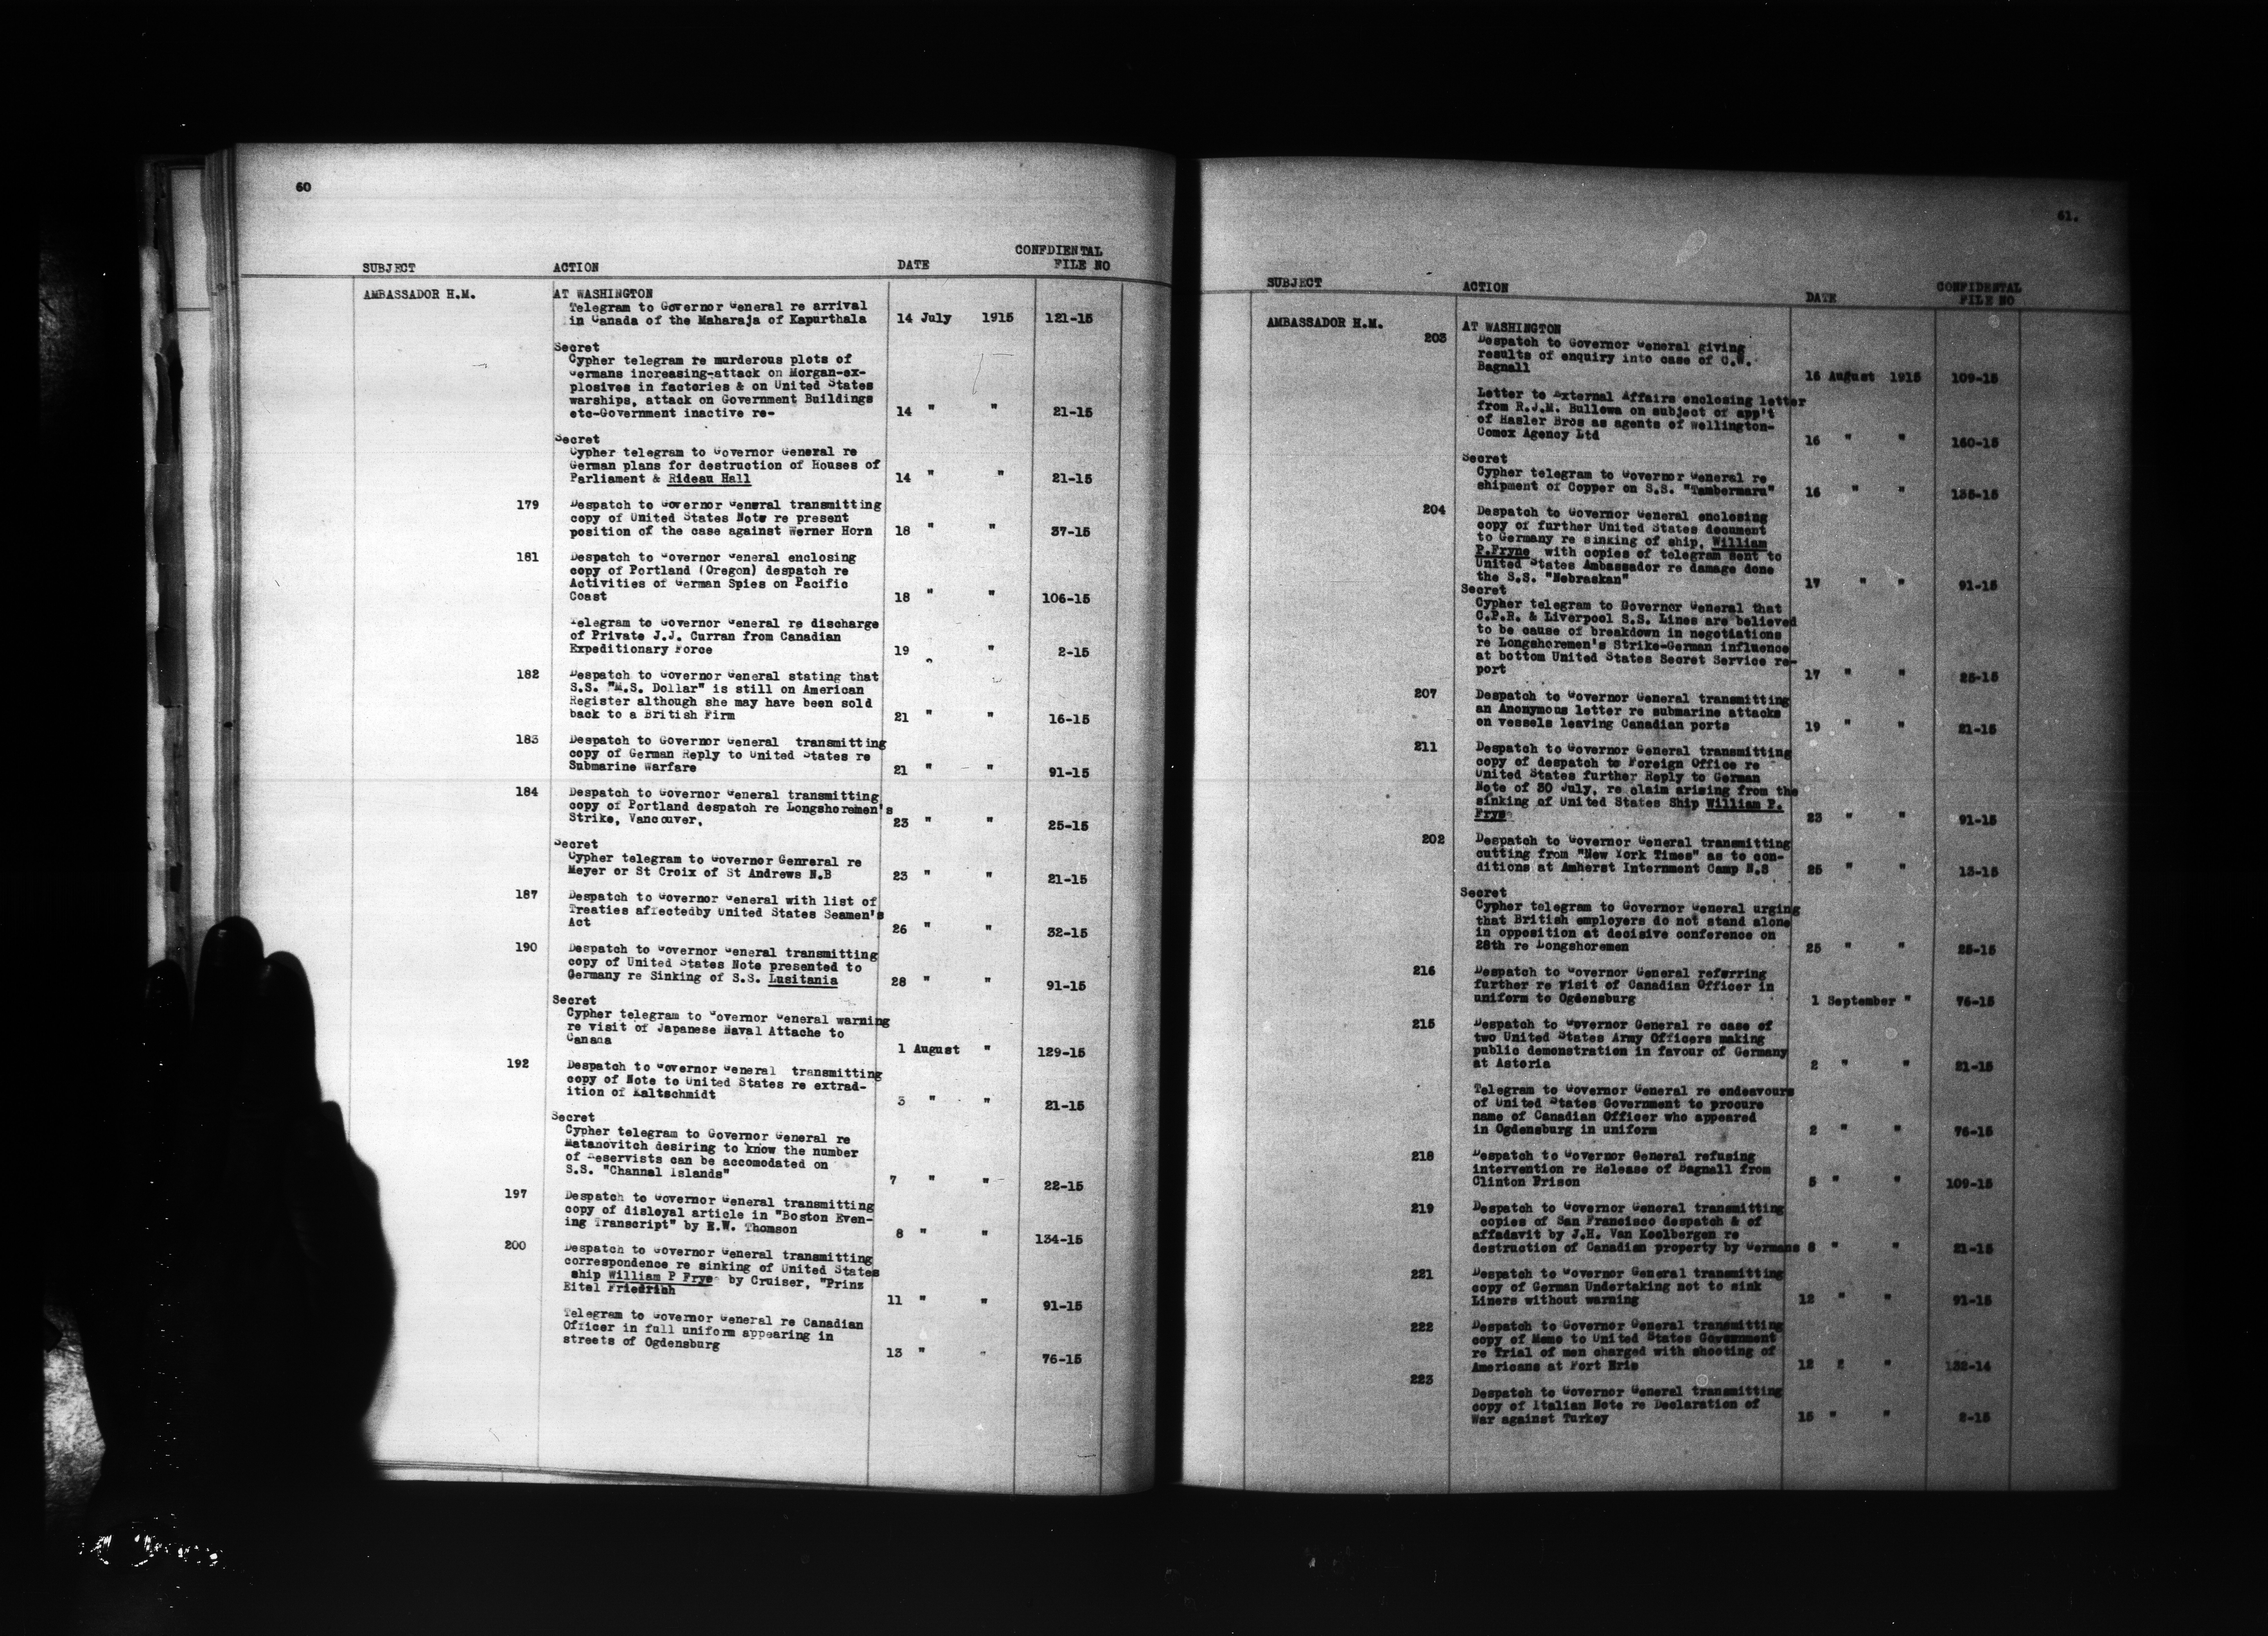 60
CONFDIENTAL
SUBJECT ACTION DATE FILE NO
AMBASSADOR H.M. AT WASHINGTON
Telegram to Governor General re arrival
in Canada of the Maharaja of Kapurthala 14 July 1915 121-15
Secret
Cypher telegram re murderous plots of
Germans increasing-attack on Morgan-ex-
plosives in factories & on United States
warships, attack on Government Buildings
etc-Government inactive re- 14 " " 21-15
Secret
Cypher telegram to Governor General re
German plans for destruction of Houses of
Parliament & Rideau Hall 14 " " 21-15
179 Despatch to Governor General transmitting
copy of United States Note re present
position of the case against Werner Horn 18 " " 37-15
181 Despatch to Governor General enclosing
copy of Portland (Oregon) despatch re
Activities of German Spies on Pacific
Coast 18 " " 106-15
Telegram to Governor General re discharge
of Private J.J. Curran from Canadian
Expeditionary Force 19 " " 2-15
182 Despatch to Governor General stating that
S.S. "M.S. Dollar" is still on American
Register although she may have been sold
back to a British Firm 21 " " 16-15
183 Despatch to Governor General transmitting
copy of German Reply to United States re
Submarine Warfare 21 " " 91-15
184 Despatch to Governor General transmitting
copy of Portland despatch re Longshoremen's
Strike, Vancouver, 23 " " 25-15
Secret
Cypher telegram to Governor Genreral re
Meyer or St Croix of St Andrews N.B 23 " " 21-15
187 Despatch to Governor General with list of
Treaties affectedby United States Seamen's
Act 26 " " 32-15
190 Despatch to Governor General transmitting
copy of United States Note presented to
Germany re Sinking of S.S. Lusitania 28 " " 91-15
Secret
Cypher telegram to Governor General warning
re visit of Japanese Naval Attache to
Canada 1 August " 129-15
192 Despatch to Governor General transmitting
copy of Note to United States re extrad-
ition of Kaltschmidt 3 " " 21-15
Secret
Cypher telegram to Governor General re
Matanovitch desiring to know the number
of Reservists can be accomodated on
S.S. "Channel Islands" 7 " " 22-15
197 Despatch to Governor General transmitting
copy of disloyal article in "Boston Even-
ing Transcript" by E.W. Thomson 8 " " 134-15
200 Despatch to Governor General transmitting
correspondence re sinking of United States
ship William P Frye by Cruiser, "Prinz
Eitel Friedrich 11 " " 91-15
Telegram to Governor General re Canadian
Officer in full uniform appearing in
streets of Ogdensburg 13 " " 76-15
61.
SUBJECT ACTION DATE CONFIDENTAL
FILE NO
AMBASSADOR H.M. AT WASHINGTON
203 Despatch to Governor General giving
results of enquiry into case of C.W.
Bagnall 16 August 1915 109-15
Letter to External Affairs enclosing letter
from R.J.M. Bullowa on subject of app't
of Hasler Bros as agents of Wellington-
Comox Agency Ltd 16 " " 160-15
Secret
Cypher telegram to Governor General re
shipment of Copper on S.S. "Tambermara" 16 " " 135-15
204 Despatch to Governor General enclosing
copy of further United States document
to Germany re sinking of ship, William
P.Fryne with copies of telegram sent to
United States Ambassador re damage done
the S.S. "Nebraskan" 17 " " 91-15
Secret
Cypher telegram to Governor General that
C.P.R. & Liverpool S.S. Lines are believed
to be cause of breakdown in negotiations
re Longshoremen's Strike-German influence
at bottom United States Secret Service re-
port 17 " " 25-15
207 Despatch to Governor General transmitting
an Anonymous letter re submarine attacks
on vessels leaving Canadian ports 19 " " 21-15
211 Despatch to Governor General transmitting
copy of despatch to Foreign Office re
United States further Reply to German
Note of 30 July, re claim arising from the
sinking of United States Ship William P.
Frye 23 " " 91-15
202 Despatch to Governor General transmitting
cutting from "New York Times" as to con-
ditions at Amherst Internment Camp N.S 25 " " 13-15
Secret
Cypher telegram to Governor General urging
that British employers do not stand alone
in opposition at decisive conference on
28th re Longshoremen 25 " " 25-15
216 Despatch to Governor General referring
further re visit of Canadian Officer in
uniform to Ogdensburg 1 September " 76-15
215 Despatch to Governor General re case of
two United States Army Officers making
public demonstration in favour of Germany
at Astoria 2 " " 21-15
Telegram to Governor General re endeavours
of United States Government to procure
name of Canadian Officer who appeared
in Ogdensburg in uniform 2 " " 76-15
218 Despatch to Governor General refusing
intervention re Release of Bagnall from
Clinton Prison 5 " " 109-15
219 Despatch to Governor General transmitting
copies of San Francisco despatch & of
affadavit by J.H. Van Koolbergen re
destruction of Canadian property by Germans 8 " " 21-15
221 Despatch to Governor General transmitting
copy of German Undertaking not to sink
Liners without warning 12 " " 91-15
222 Despatch to Governor General transmitting
copy of Memo to United States Government
re Trial of men charged with shooting of
Americans at Fort Erie 12 " 132-14
223
Despatch to Governor General transmitting
copy of Italian Note re Declaration of
War against Turkey 15 " " 2-15